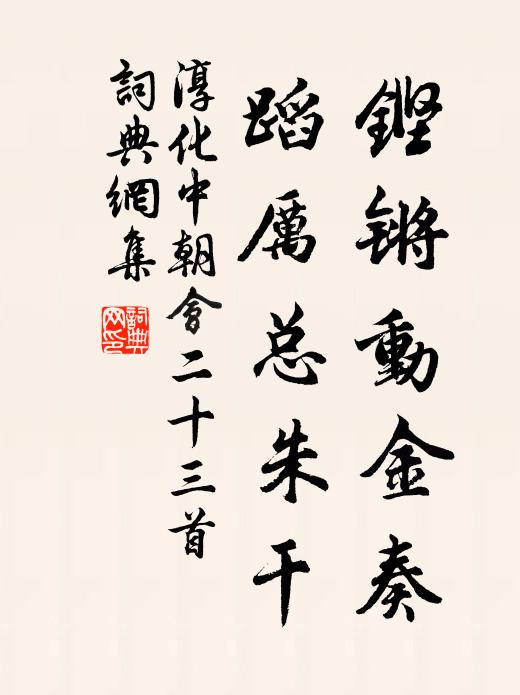 鏗锵動金奏
蹈厲总朱干
淳化中朝會二十三首
詞典網集
詞典网印